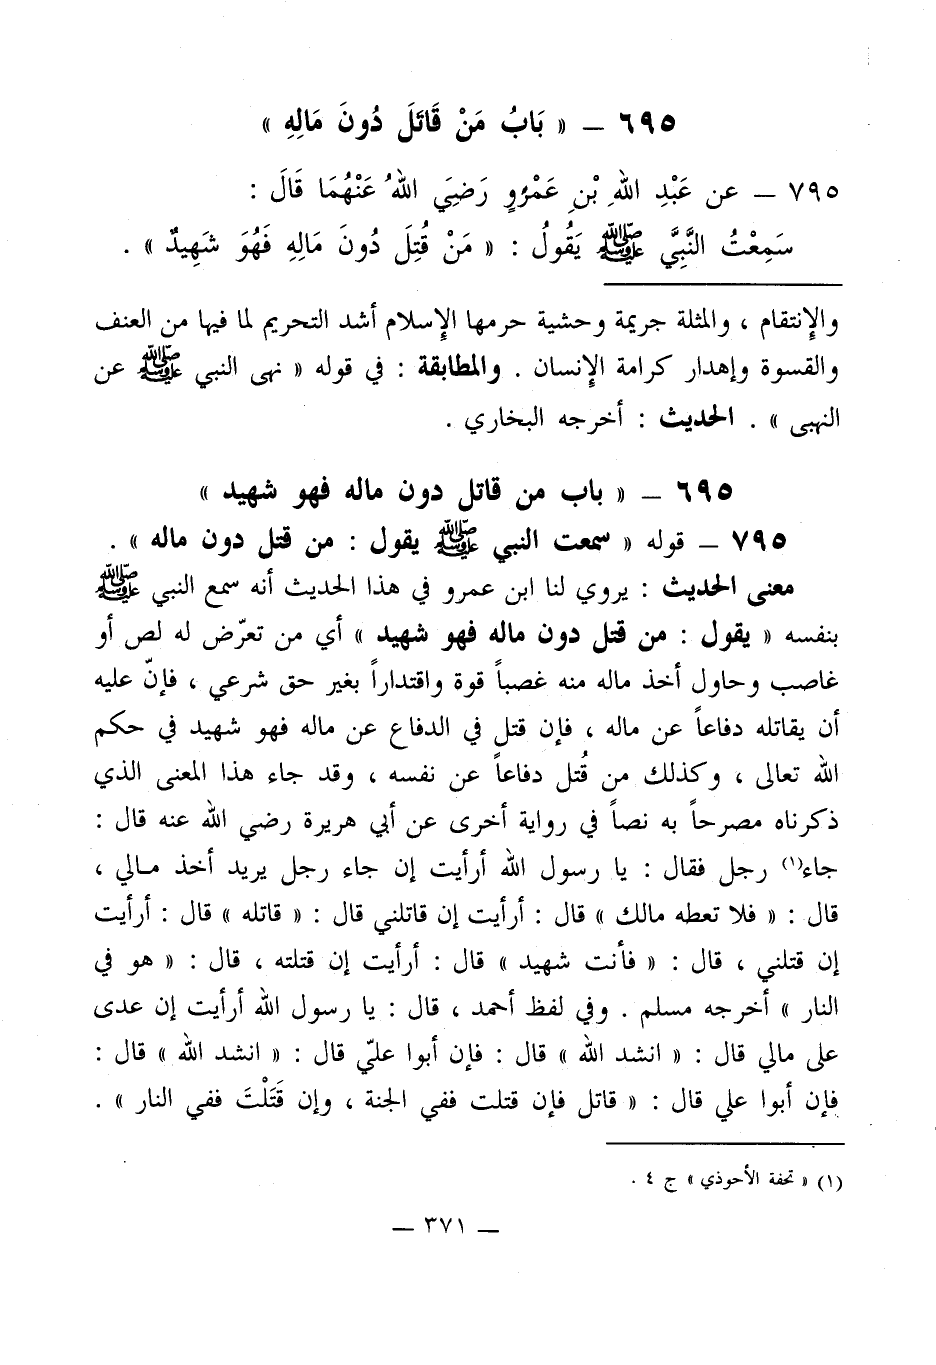 ٦٩٥ ــ « بَابُ مَنْ قَاتَلَ دُونَ مَالِهِ »
٧٩٥ ــ عن عَبْدِ اللهِ بْنِ عَمْرٍو رَضِيَ اللهُ عَنْهُمَا قَالَ :
سَمِعْتُ النَّبِيَّ ﷺ يَقُولُ : « مَنْ قُتِلَ دُونَ مَالِهِ فَهُوَ شَهِيدٌ » .
والإنتقام ، والمثلة جريمة وحشية حرمها الإسلام أشد التحريم لما فيها من العنف
والقسوة وإهدار كرامة الإنسان . والمطابقة : في قوله « نهى النبي ﷺ عن
النهبى » . الحديث : أخرجه البخاري .
٦٩٥ ــ « باب من قاتل دون ماله فهو شهيد »
٧٩٥ ــ قوله « سمعت النبي ﷺ يقول : من قتل دون ماله » .
معنى الحديث : يروي لنا ابن عمرو في هذا الحديث أنه سمع النبي ﷺ
بنفسه « يقول : من قتل دون ماله فهو شهيد » أي من تعرّض له لص أو
غاصب وحاول أخذ ماله منه غصباً قوة واقتداراً بغير حق شرعي ، فإنّ عليه
أن يقاتله دفاعاً عن ماله ، فإن قتل في الدفاع عن ماله فهو شهيد في حكم
الله تعالى ، وكذلك من قُتل دفاعاً عن نفسه ، وقد جاء هذا المعنى الذي
ذكرناه مصرحاً به نصاً في رواية أخرى عن أبي هريرة رضي الله عنه قال :
جاء(١) رجل فقال : يا رسول الله أرأيت إن جاء رجل يريد أخذ مالي ،
قال : « فلا تعطه مالك » قال : أرأيت إن قاتلني قال : « قاتله » قال : أرأيت
إن قتلني ، قال : « فأنت شهيد » قال : أرأيت إن قتلته ، قال : « هو في
النار » أخرجه مسلم . وفي لفظ أحمد ، قال : يا رسول الله أرأيت إن عدى
على مالي قال : « انشد الله » قال : فإن أبوا عليّ قال : « انشد الله » قال :
فإن أبوا علي قال : « قاتل فإن قتلت ففي الجنة ، وإن قَتَلْتَ ففي النار » .
(١) « تحفة الأحوذي » ج ٤ .
ــ ٣٧١ ــ